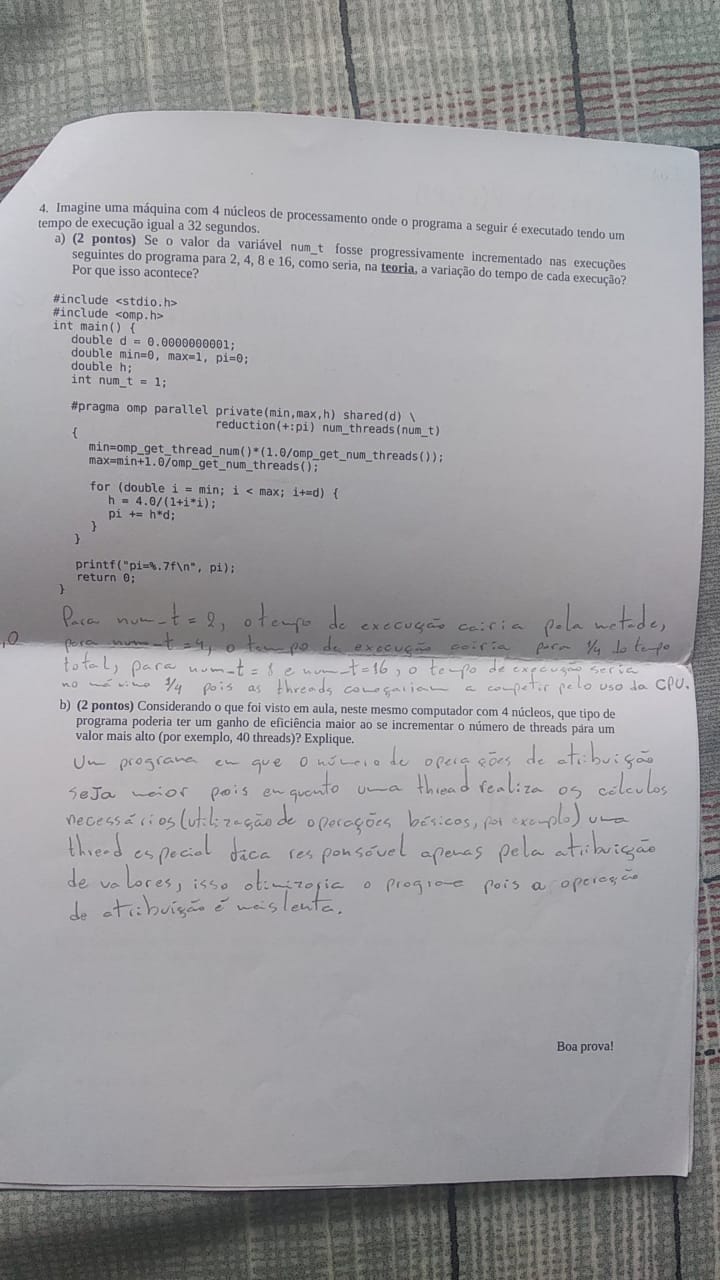 4. Imagine uma máquina com 4 núcleos de processamento onde o programa a seguir é executado tendo um
tempo de execução igual a 32 segundos.
a) (2 pontos) Se o valor da variável num_t fosse progressivamente incrementado nas execuções
seguintes do programa para 2, 4, 8 e 16, como seria, na teoria, a variação do tempo de cada execução?
Por que isso acontece?
#include <stdio.h>
#include <omp.h>
int main() {
double d = 0.0000000001;
double min=0, max=1, pi=0;
double h;
int num_t = 1;
#pragma omp parallel private(min,max,h) shared(d) \
reduction(+:pi) num_threads(num_t)
{
min=omp_get_thread_num()*(1.0/omp_get_num_threads());
max=min+1.0/omp_get_num_threads();
for (double i = min; i < max; i+=d) {
h = 4.0/(1+i*i);
pi += h*d;
}
}
printf("pi=%.7f\n", pi);
return 0;
}
Para num_t = 2, o tempo de execução cairia pela metade,
,0
para num_t=4, o tempo de execução cairia para 1/4 do tempo
total, para num_t = 8 e num_t=16, o tempo de execução seria
no máximo 1/4 pois as threads começariam a competir pelo uso da CPU.
b) (2 pontos) Considerando o que foi visto em aula, neste mesmo computador com 4 núcleos, que tipo de
programa poderia ter um ganho de eficiência maior ao se incrementar o número de threads para um
valor mais alto (por exemplo, 40 threads)? Explique.
Um programa em que o número de operações de atribuição
seja maior pois enquanto uma thread realiza os cálculos
necessários (utilização de operações básicos, por exemplo) uma
thread especial fica responsável apenas pela atribuição
de valores, isso otimizaria o programa pois a operação
de atribuição é mais lenta.
Boa prova!